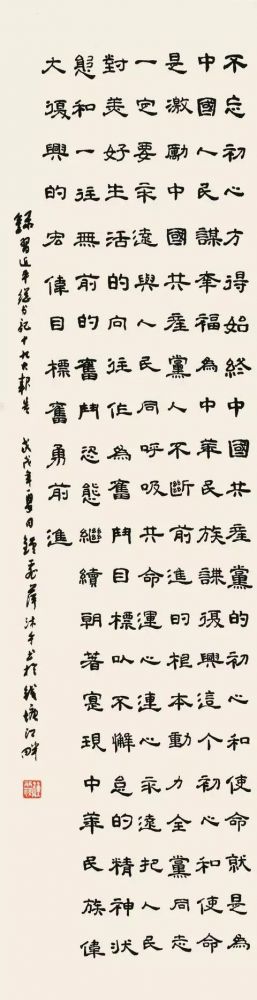 不忘初心方得始終中國共產黨的初心和使命就是為
中國人民謀幸福為中華民族謀復興這个初心和使命
是激勵中國共產黨人不斷前進的根本動力全黨同志
一定要永遠與人民同呼吸共命運心連心永遠把人民
對美好生活的向往作為奮鬥目標以不懈怠的精神狀
態和一往無前的奮鬥恣態繼續朝著實現中華民族偉
大復興的宏偉目標奮勇前進
錄習近平總書記十九大報告 戊戌年夏月 薛沐 書於錢塘江畔